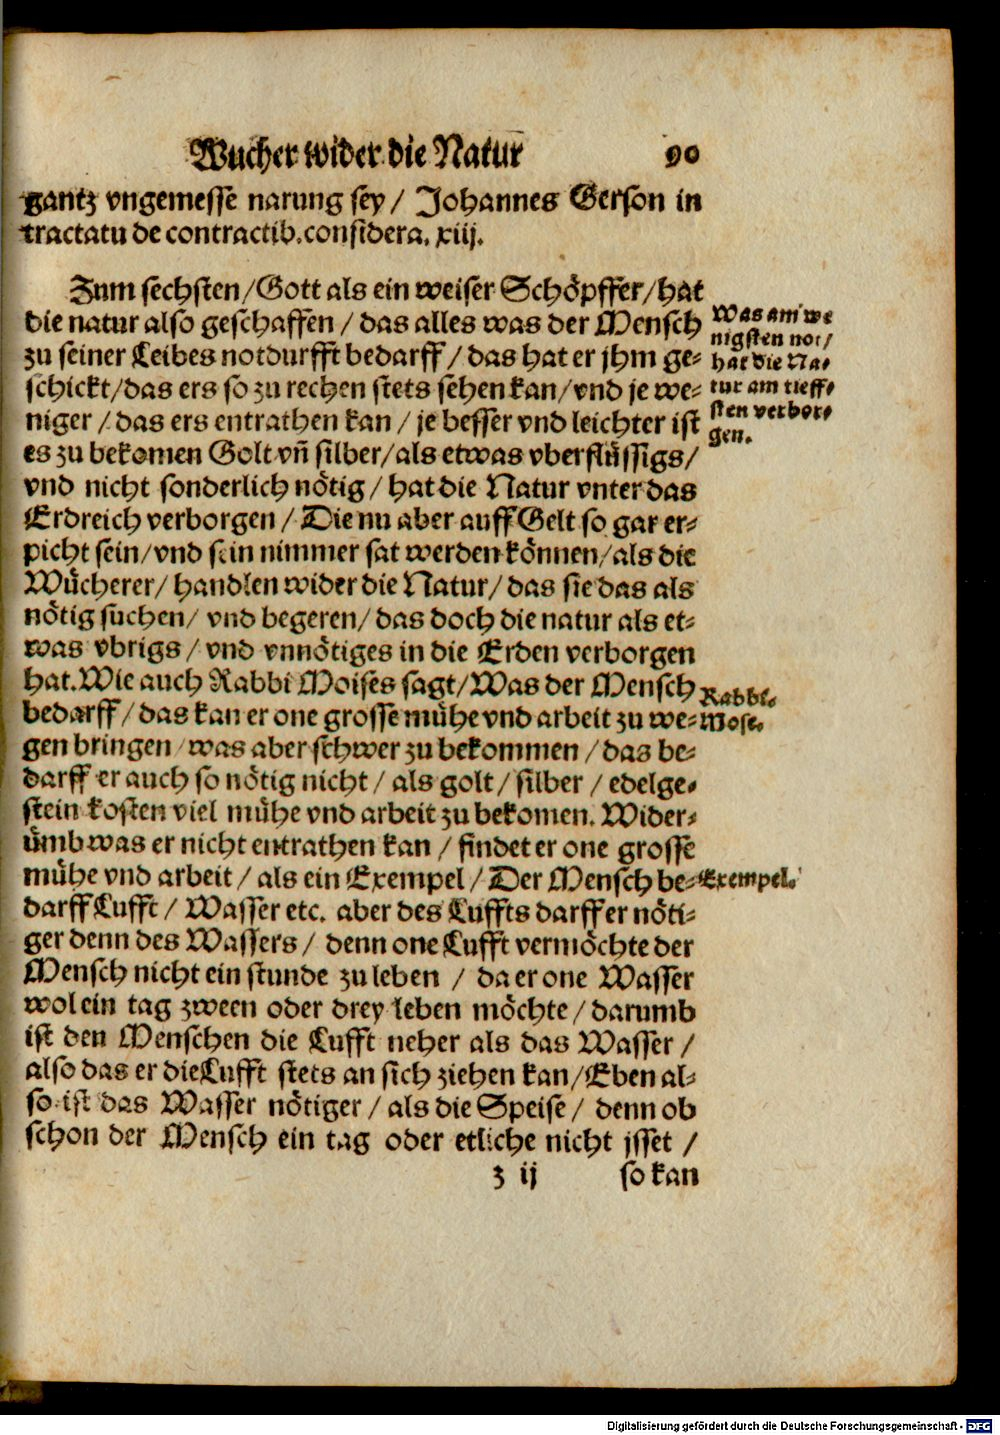 Wucher wider die Natur 90
gantz vngemesse narung sey / Johannes Gerson in
tractatu de contractib. considera. xiij.
Zum sechsten / Gott als ein weiser Schöpffer / hat
die natur also geschaffen / das alles was der Mensch
zu seiner Leibes notdurfft bedarff / das hat er jhm ge-
schickt / das ers so zu rechen stets sehen kan / vnd je we-
niger / das ers entrathen kan / je besser vnd leichter ist
es zu bekomen Golt vñ silber / als etwas vberflüssigs /
vnd nicht sonderlich nötig / hat die Natur vnter das
Erdreich verborgen / Die nu aber auff Gelt so gar er-
picht sein / vnd sein nimmer sat werden können / als die
Wücherer / handlen wider die Natur / das sie das als
nötig suchen / vnd begeren / das doch die natur als et-
was vbrigs / vnd vnnötiges in die Erden verborgen
hat. Wie auch Rabbi Moises sagt / Was der Mensch
bedarff / das kan er one grosse mühe vnd arbeit zu we-
gen bringen / was aber schwer zu bekommen / das be-
darff er auch so nötig nicht / als golt / silber / edelge-
stein kosten viel mühe vnd arbeit zu bekomen. Wider-
ümb was er nicht entrathen kan / findet er one grosse
mühe vnd arbeit / als ein Exempel / Der Mensch be-
darff Lufft / Wasser etc. aber des Luffts darff er nöti-
ger denn des Wassers / denn one Lufft vermöchte der
Mensch nicht ein stunde zu leben / da er one Wasser
wol ein tag zween oder drey leben möchte / darumb
ist den Menschen die Lufft neher als das Wasser /
also das er die Lufft stets an sich ziehen kan / Eben al-
so ist das Wasser nötiger / als die Speise / denn ob
schon der Mensch ein tag oder etliche nicht jsset /
z ij so kan
Was am we
nigsten not /
hat die Na-
tur am tieff-
sten verbor-
gen.
Rabbi.
Mose.
Exempel.
Digitalisierung gefördert durch die Deutsche Forschungsgemeinschaft - DFG